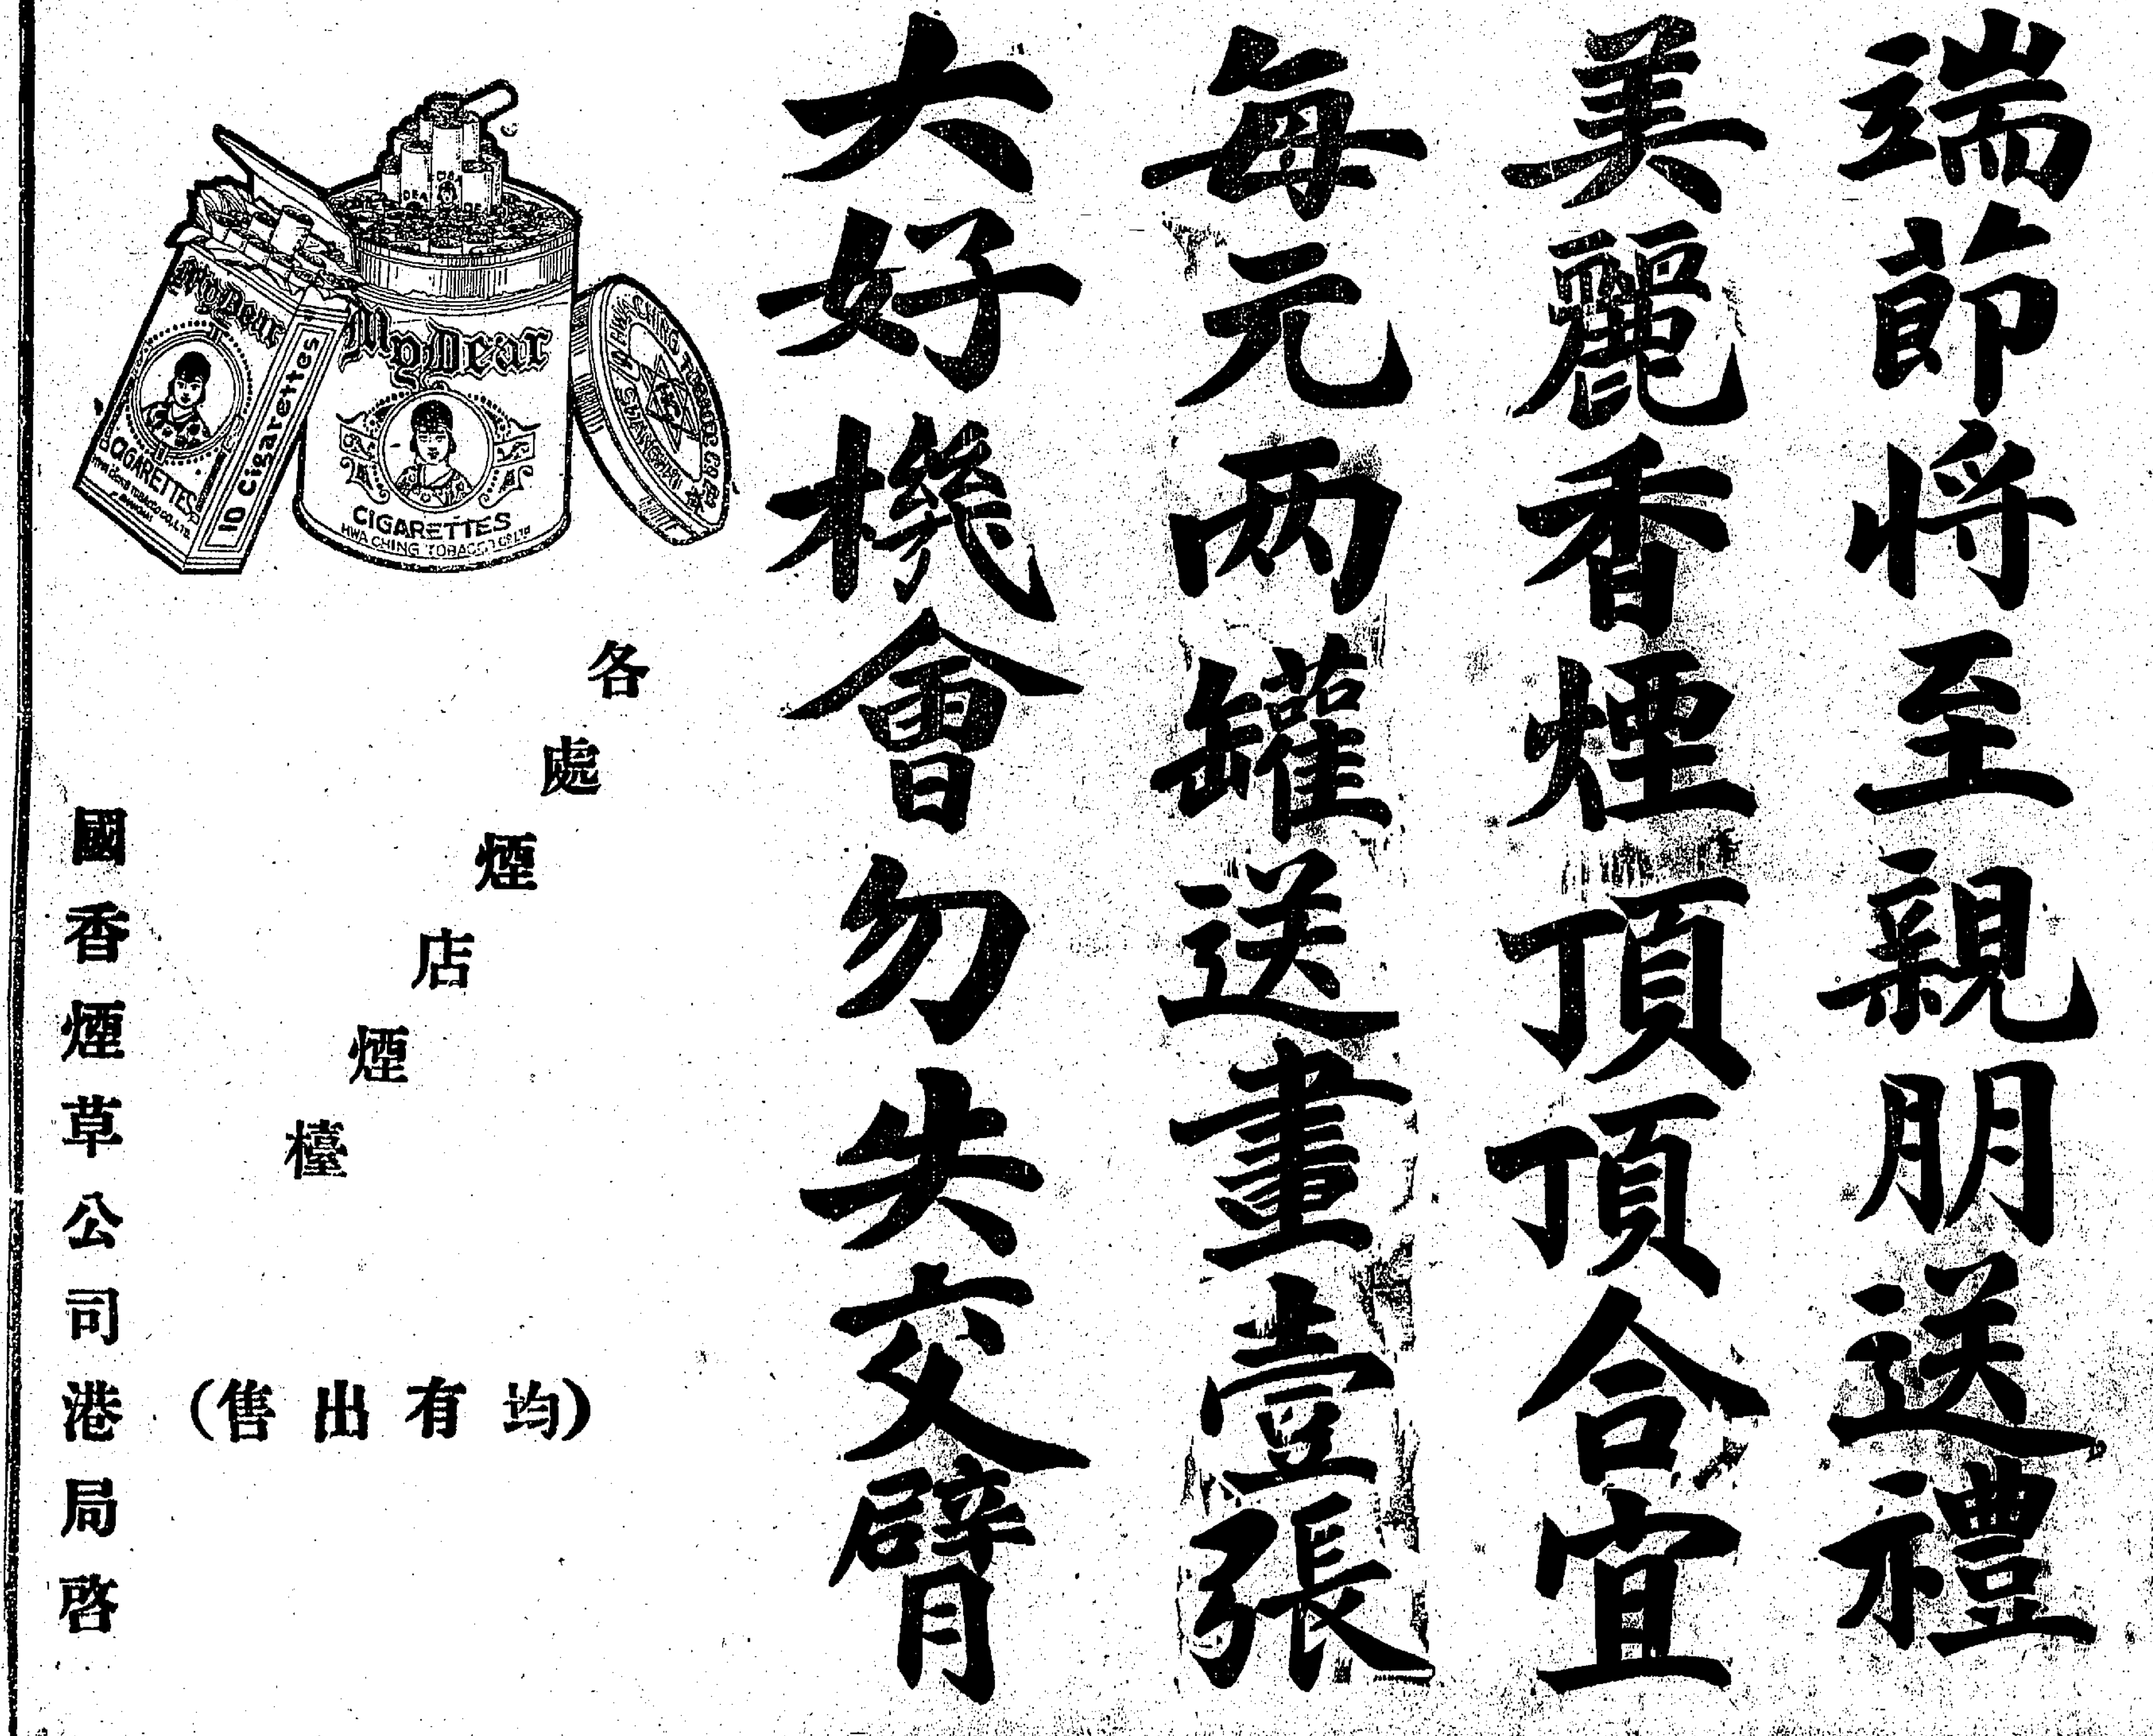 端節将至親朋送禮
美麗香煙頂頂合宜
每元两罐送畫壹張
大好機會勿失交臂
My Dear
CIGARETTES
HWA CHING TOBACCO CO LTD
SHANGHAI
10 Cigarettes
My Dear
CIGARETTES
HWA CHING TOBACCO CO LTD
HWA CHING TOBACCO CO LTD
SHANGHAI
各處煙店煙檯
(均有出售)
國香煙草公司港局啓